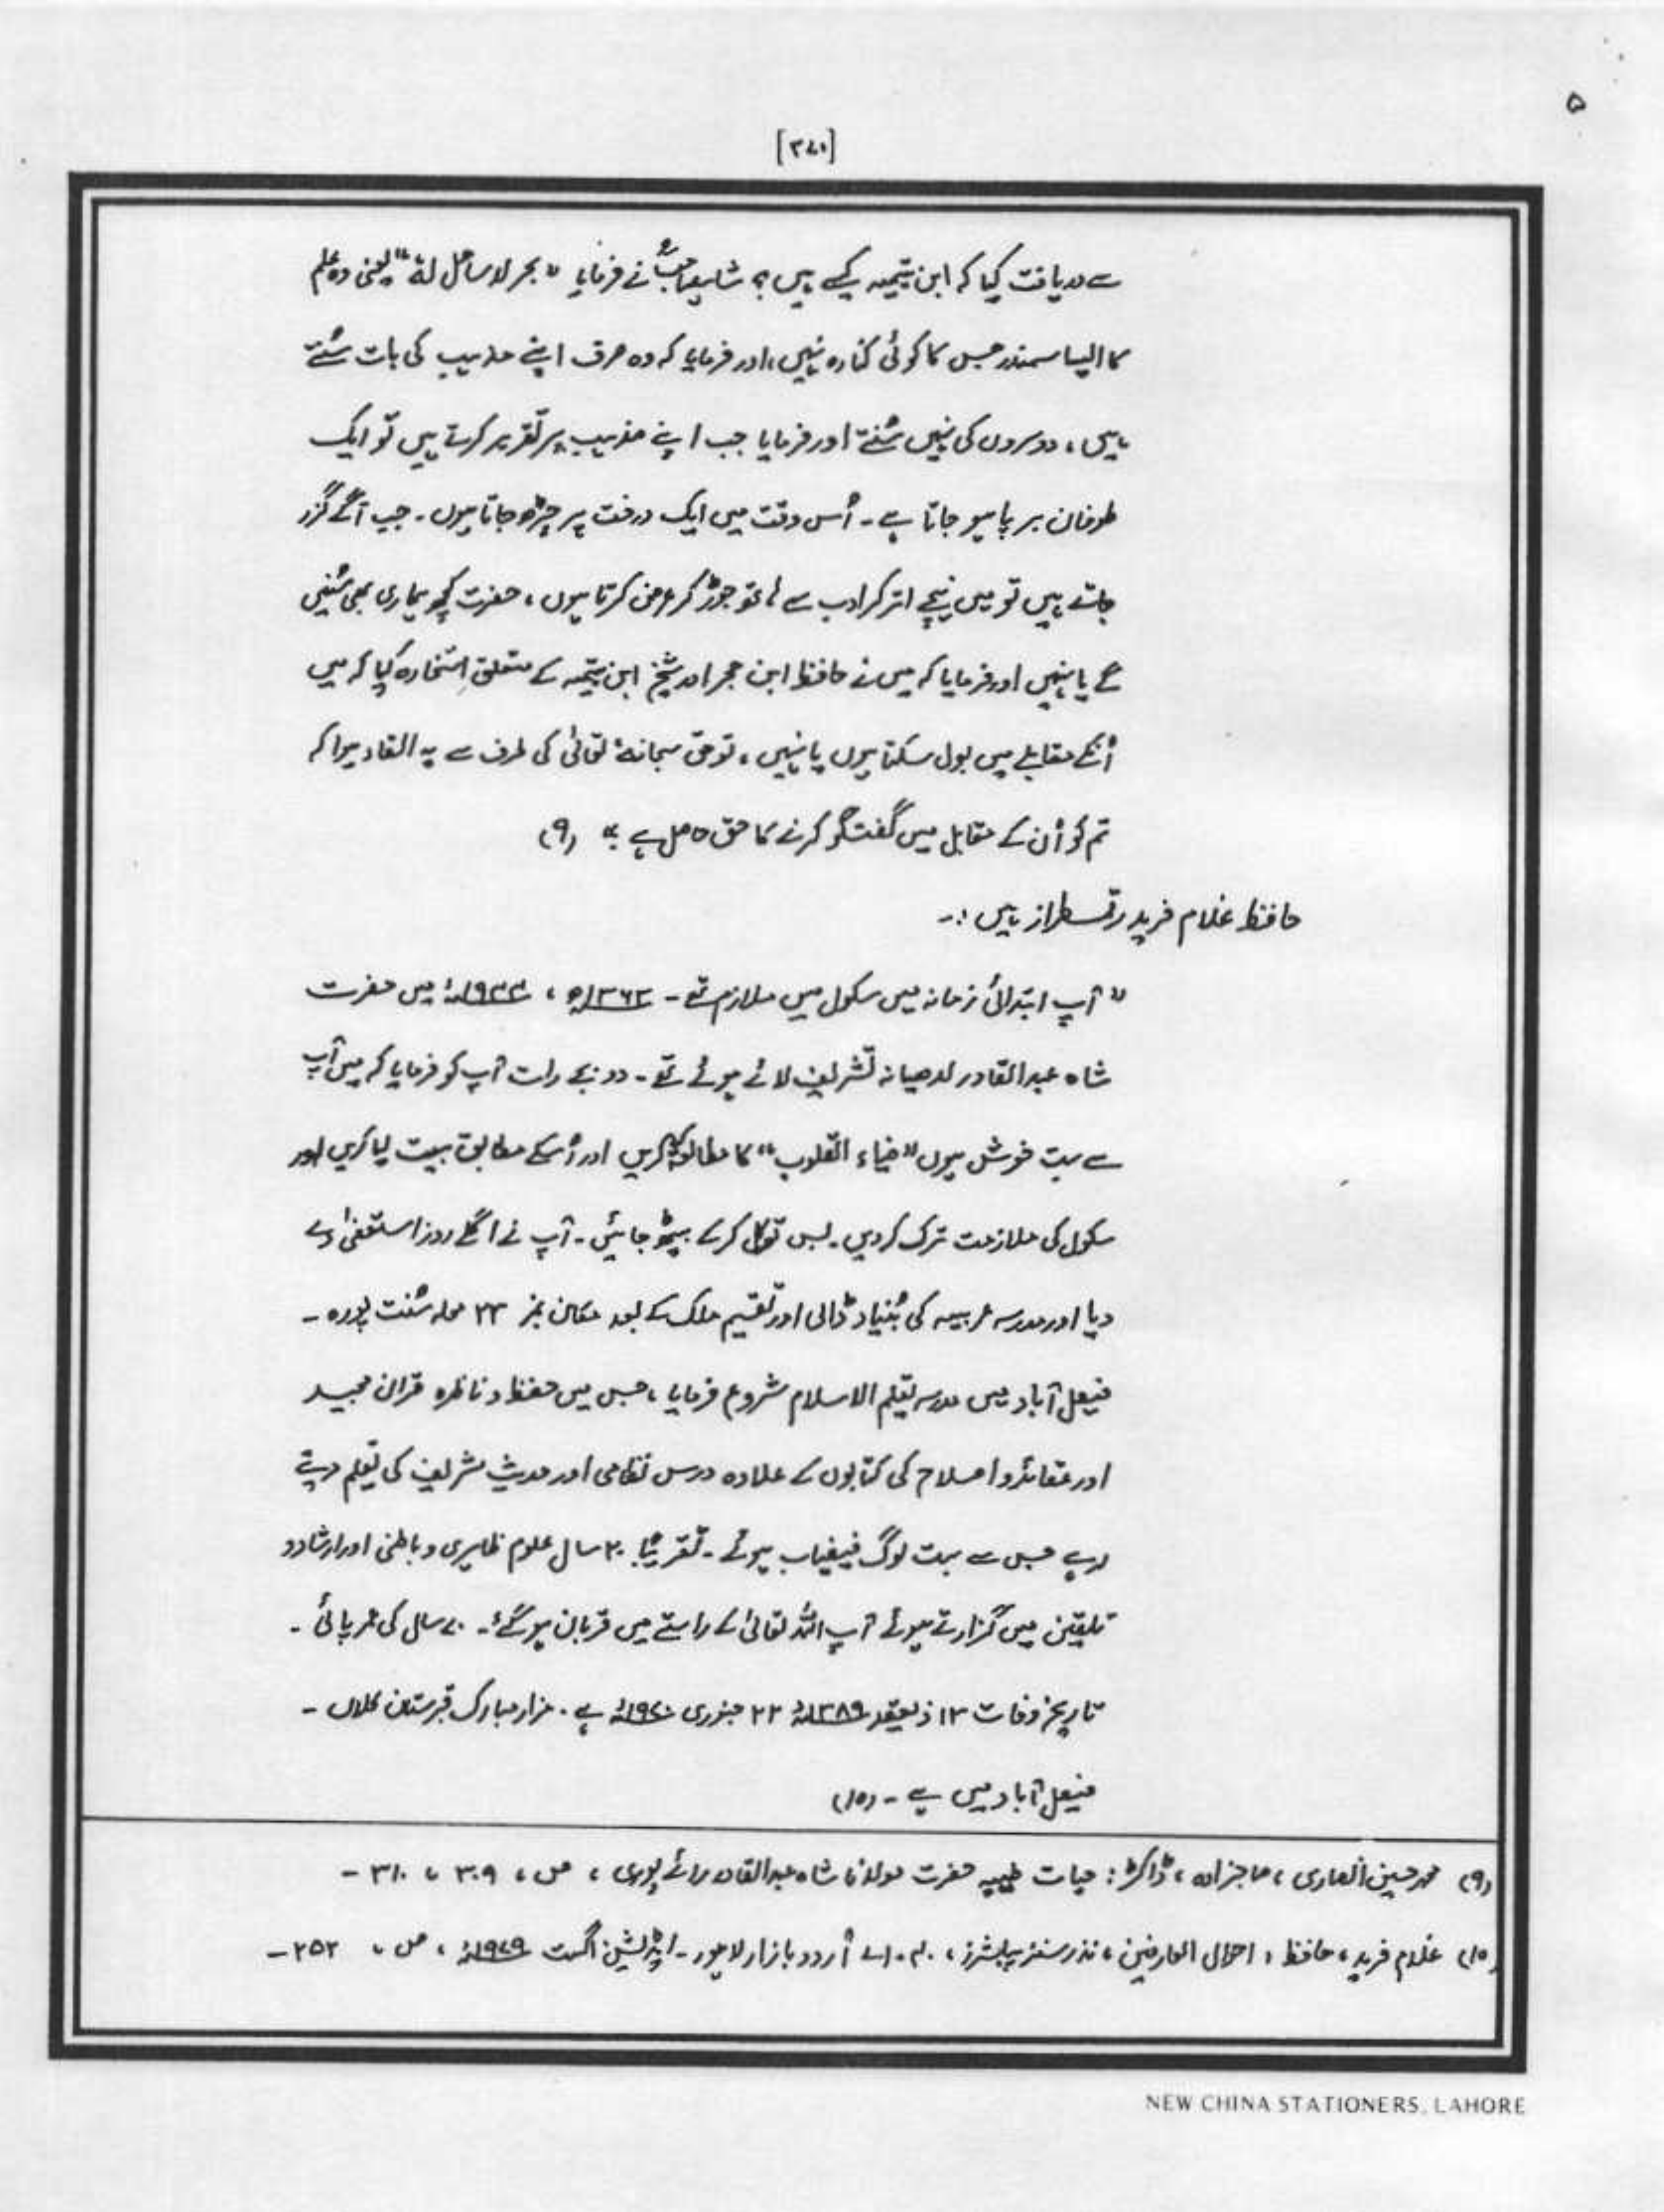 ۵
[۳۷۰]
سے دریافت کیا کہ ابن تیمیہ کیسے ہیں؟ شاہ صاحبؒ نے فرمایا "بحر لا ساحل لہٗ" یعنی وہ علم
کا ایسا سمندر جس کا کوئی کنارہ نہیں، اور فرمایا کہ وہ صرف اپنے مذہب کی بات سُنتے
ہیں، دوسروں کی نہیں سُنتے اور فرمایا جب اپنے مذہب پر تقریر کرتے ہیں تو ایک
طوفان برپا ہو جاتا ہے۔ اُس وقت میں ایک درخت پر چڑھ جاتا ہوں۔ جب آگے گزر
جاتے ہیں تو میں نیچے اتر کر ادب سے ہاتھ جوڑ کر عرض کرتا ہوں، حضرت کچھ ہماری بھی سُنیں
گے یا نہیں اور فرمایا کہ میں نے حافظ ابن حجر اور شیخ ابن تیمیہ کے متعلق استخارہ کیا کہ میں
اُنکے مقابلے میں بول سکتا ہوں یا نہیں، تو حق سبحانہٗ تعالیٰ کی طرف سے یہ القاء ہوا کہ
تم کو اُن کے مقابل میں گفتگو کرنے کا حق حاصل ہے۔" (۹)
حافظ غلام فرید رقمطراز ہیں :۔
"آپ ابتدائی زمانہ میں سکول میں ملازم تھے۔ ۱۳۶۳ھ، ۱۹۴۴ء میں حضرت
شاہ عبدالقادر لدھیانہ تشریف لائے ہوئے تھے۔ دو بجے رات آپ کو فرمایا کہ میں آپ
سے بہت خوش ہوں "ضیاء القلوب" کا مطالعہ کریں اور اُسکے مطابق بیعت لیا کریں اور
سکول کی ملازمت ترک کر دیں۔ بس توکل کر کے بیٹھ جائیں۔ آپ نے اگلے روز استعفیٰ دے
دیا اور مدرسہ عربیہ کی بُنیاد ڈالی اور تقسیم ملک کے بعد مکان نمبر ۲۳ محلہ سُنت پورہ۔
فیصل آباد میں مدرسہ تعلیم الاسلام شروع فرمایا، جس میں حفظ و ناظرہ قرآن مجید
اور عقائد و اصلاح کی کتابوں کے علاوہ درس نظامی اور حدیث شریف کی تعلیم دیتے
رہے جس سے بہت لوگ فیضیاب ہوئے۔ تقریباً ۲۰ سال علوم ظاہری و باطنی اور ارشاد و
تلقین میں گزارتے ہوئے آپ اللہ تعالیٰ کے راستے میں قربان ہو گئے۔ ۷۰ سال کی عمر پائی۔
تاریخ وفات ۱۳ ذیقعد ۱۳۸۹ھ ۲۲ جنوری ۱۹۷۰ء ہے۔ مزار مبارک قبرستان کلاں۔
فیصل آباد میں ہے۔ (۱۰)
(۹) محمد حسین انصاری، صاحبزادہ، ڈاکٹر: حیات طیبہ حضرت مولانا شاہ عبدالقادر رائے پوری، ص، ۳۰۹، ۳۱۰۔
(۱۰) غلام فرید، حافظ، احوال العارفین، نذر سنز پبلشرز، ۴۰۔اے اُردو بازار لاہور۔ ایڈیشن اگست ۱۹۷۹ء، ص، ۲۵۲۔
NEW CHINA STATIONERS, LAHORE